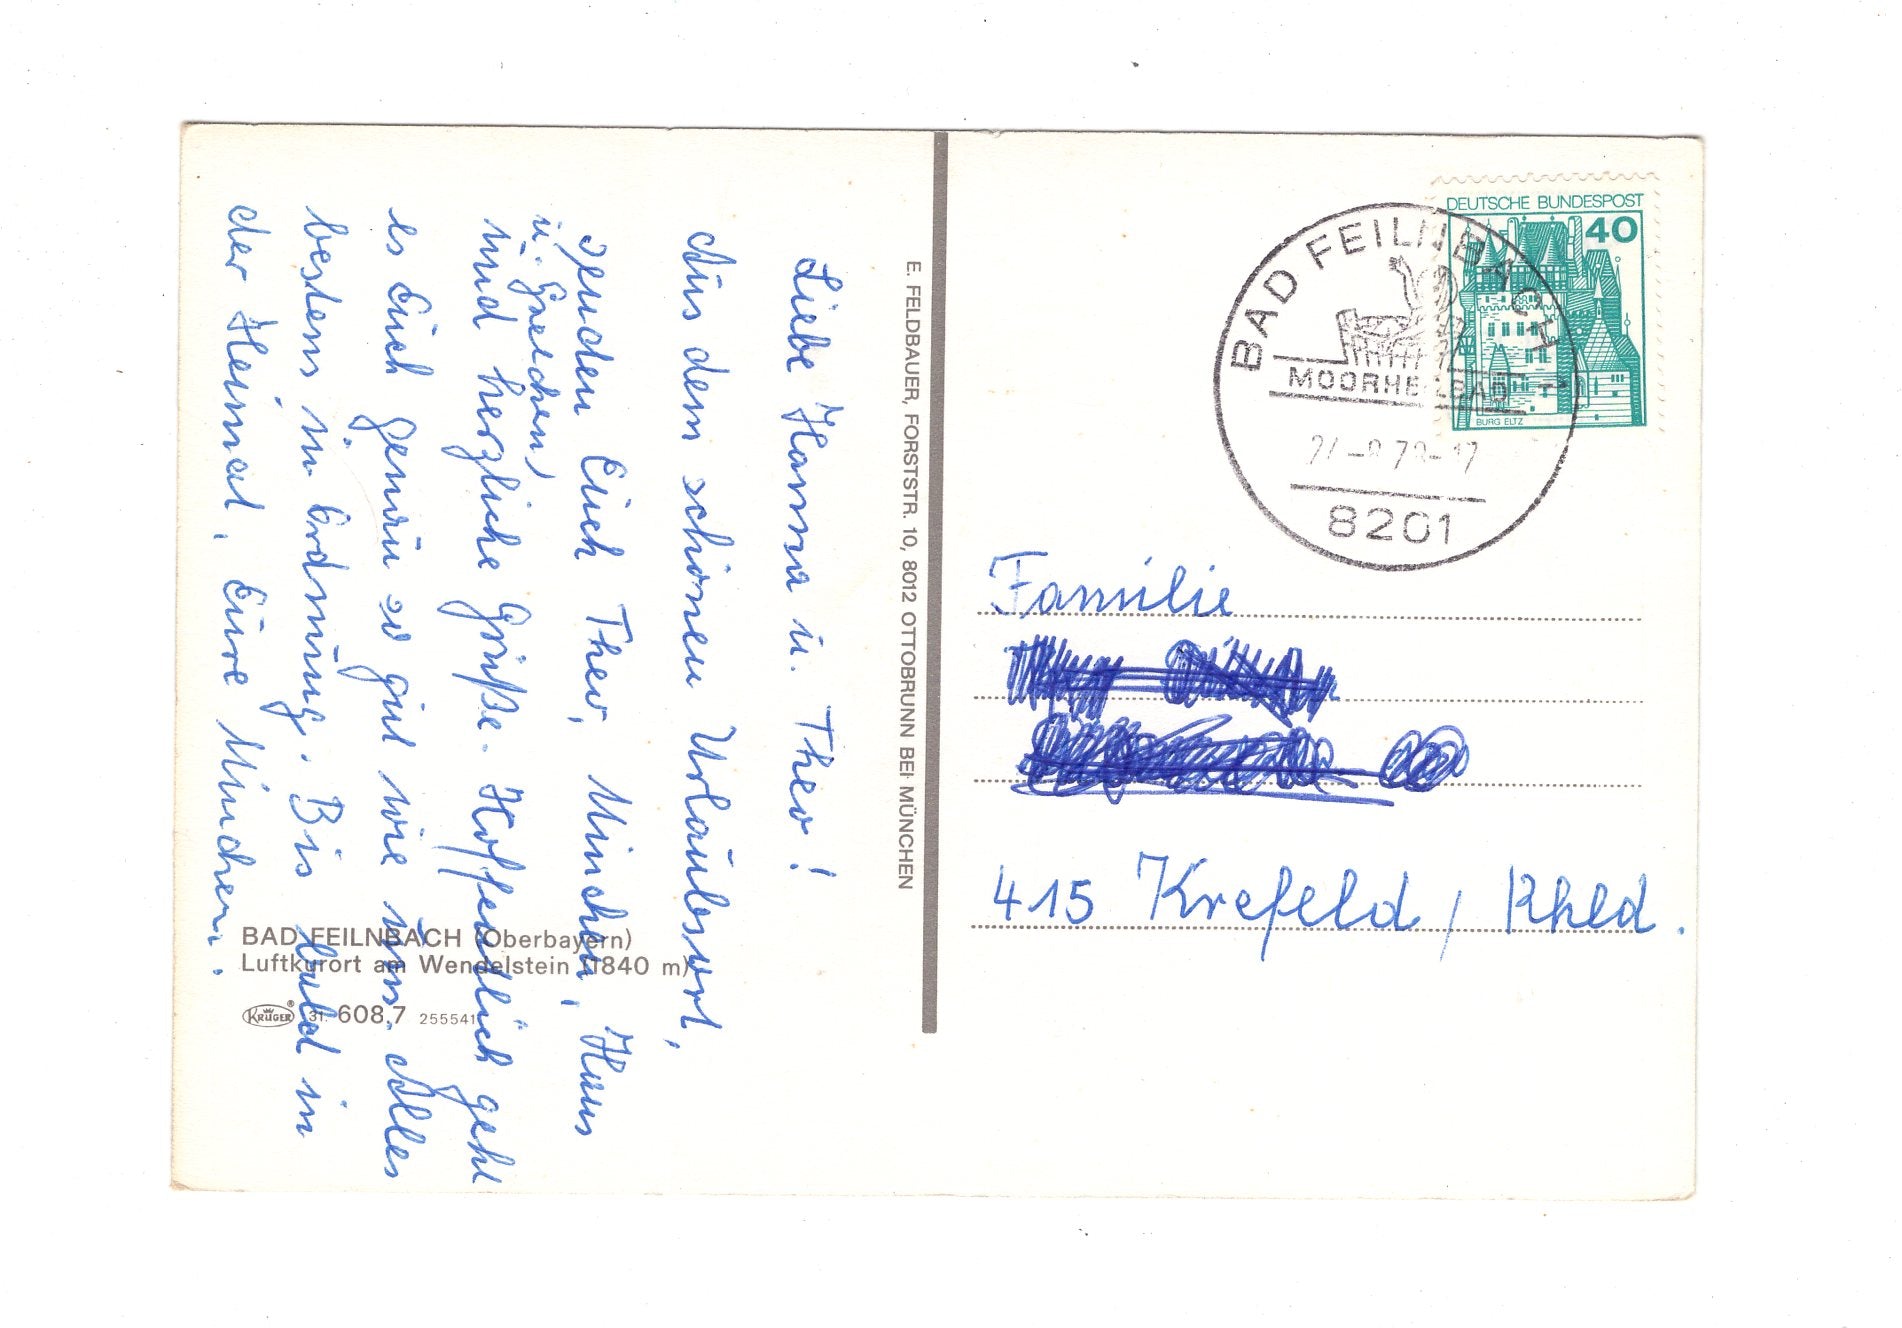 Liebe Hanna u. Theo!
Aus dem schönen Urlaubsort,
senden Euch Theo, Minchen, Hans
u. Gretchen,
und herzliche Grüße. Hoffendlich geht
es Euch genau so gut wie uns. Alles
bestens in Ordnung. Bis bald in
der Heimat. Eure Minchen.
BAD FEILNBACH (Oberbayern)
Luftkurort am Wendelstein (1840 m)
KRÜGER® 31. 608.7 255541
E. FELDBAUER, FORSTSTR. 10, 8012 OTTOBRUNN BEI MÜNCHEN
DEUTSCHE BUNDESPOST
40
BURG ELTZ
BAD FEILNBACH
MOORHEILBAD
8201
Familie
415 Krefeld / Rhld.